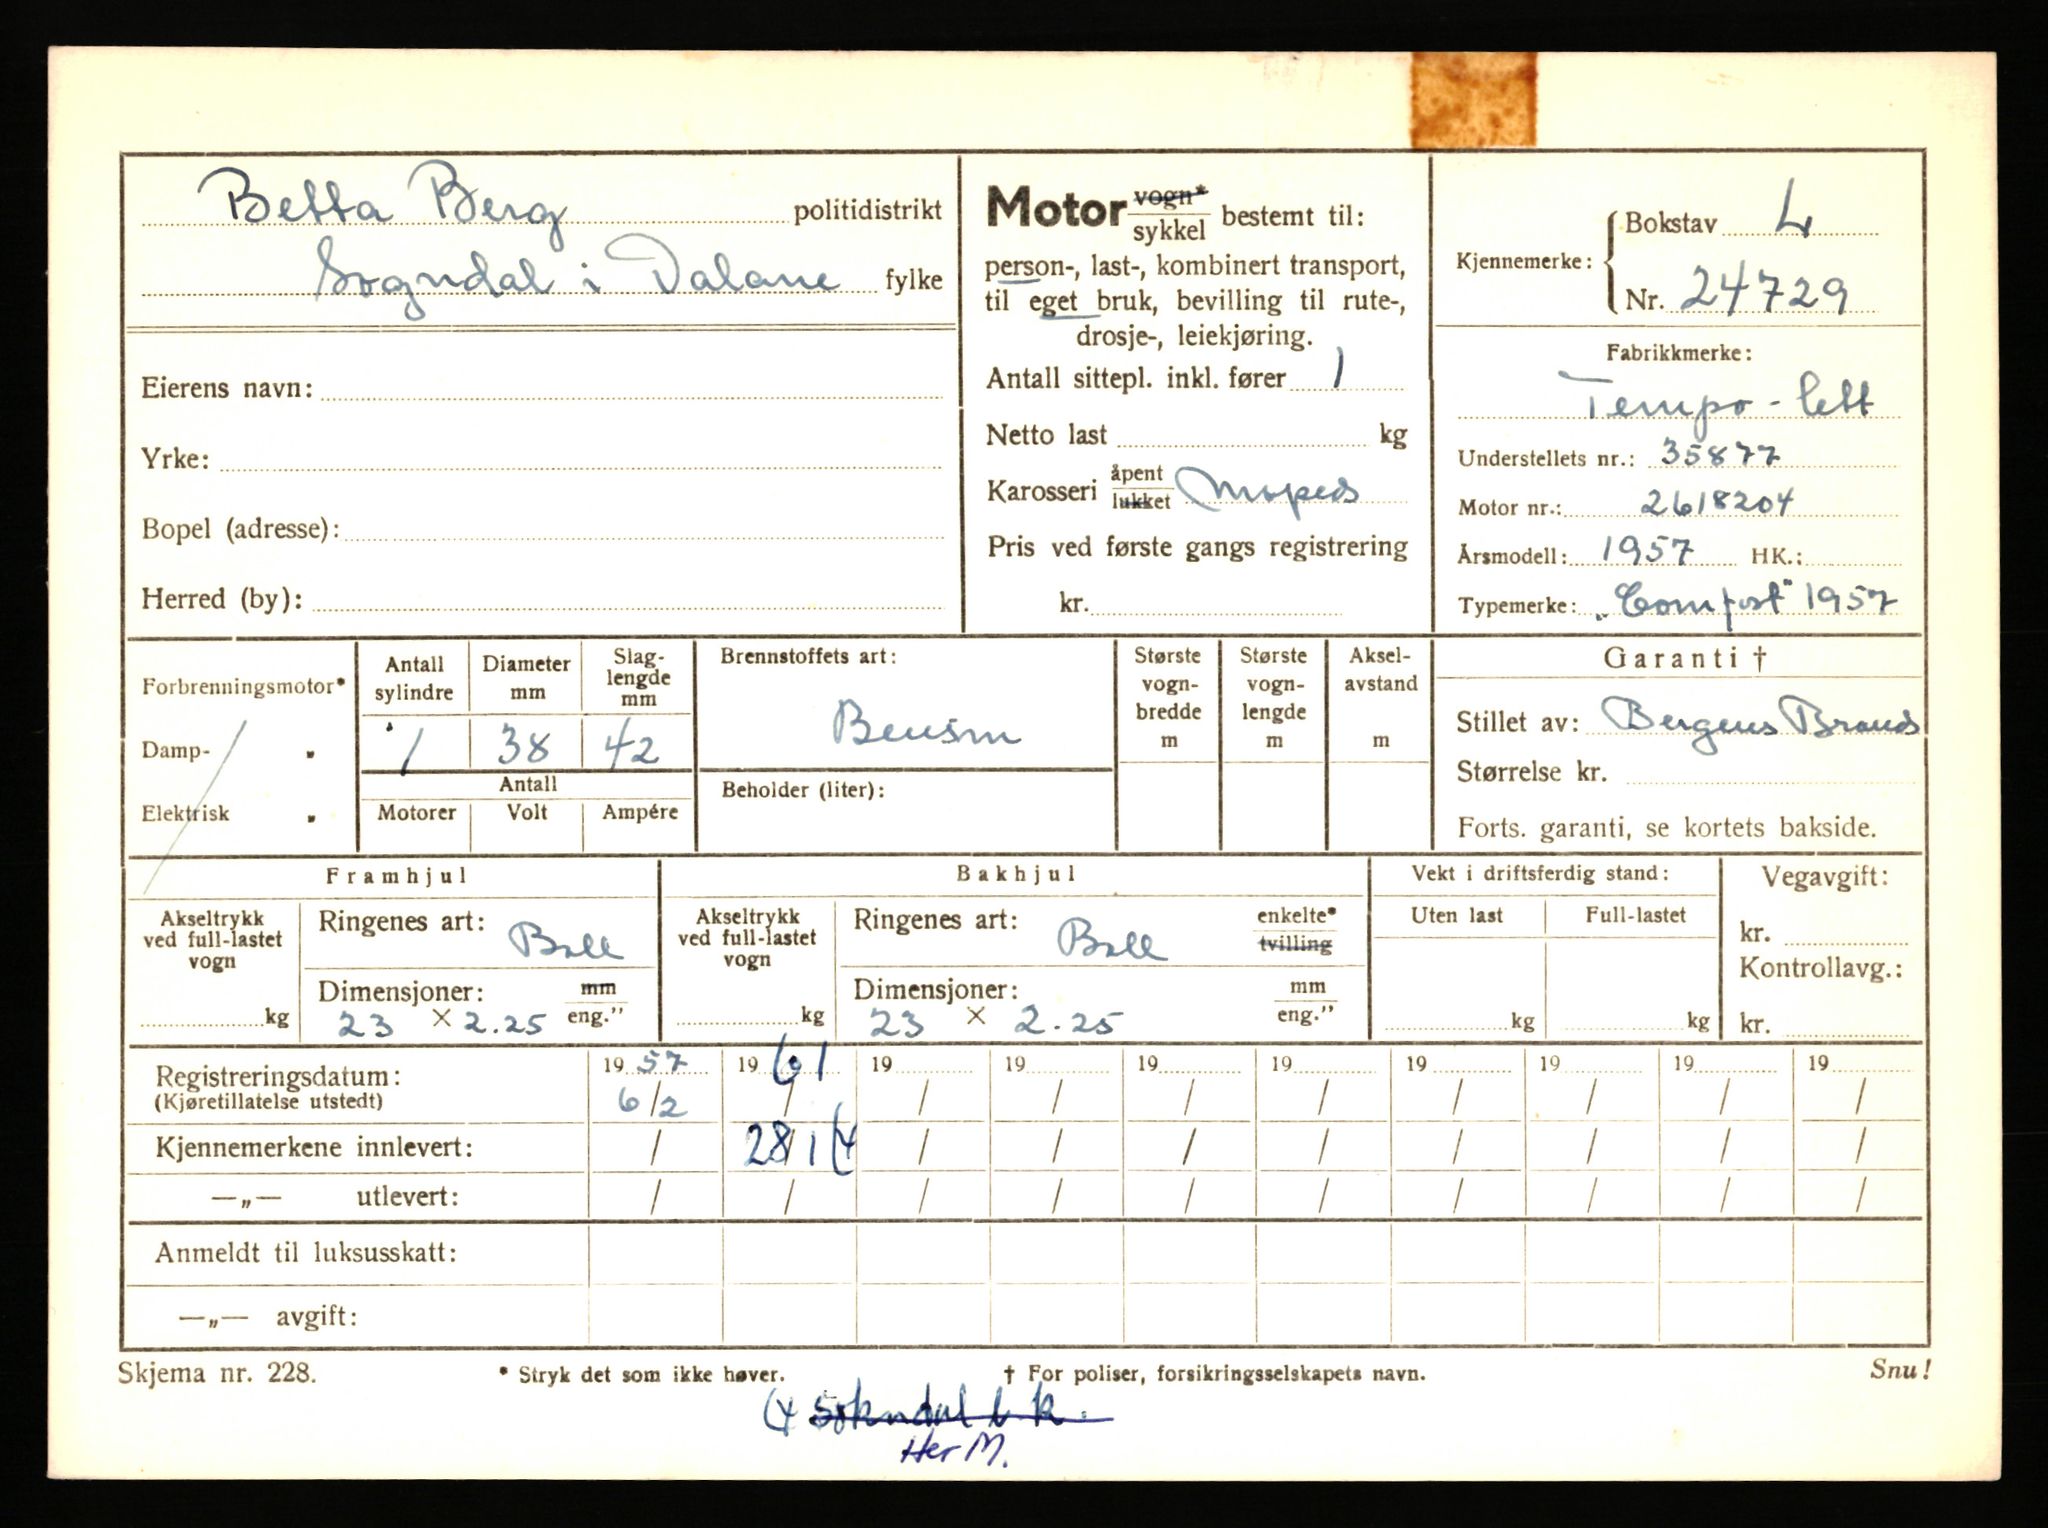 Betta Berg politidistrikt
Sogndal i Dalane fylke
Eierens navn:
Yrke:
Bopel (adresse):
Herred (by):
Motor vogn* sykkel bestemt til:
person-, last-, kombinert transport,
til eget bruk, bevilling til rute-,
drosje-, leiekjøring.
Antall sittepl. inkl. fører 1
Netto last kg
Karosseri åpent lukket Moped
Pris ved første gangs registrering
kr.
Kjennemerke: Bokstav L
Nr. 24729
Fabrikkmerke:
Tempo-lett
Understellets nr.: 35877
Motor nr.: 2618204
Årsmodell: 1957 HK.:
Typemerke: „Comfort" 1957
Forbrenningsmotor*
Damp- "
Elektrisk "
Antall sylindre
Diameter mm
Slag-lengde mm
1 38 42
Antall
Motorer Volt Ampére
Brennstoffets art:
Bensin
Beholder (liter):
Største vogn-bredde m
Største vogn-lengde m
Aksel-avstand m
Garanti †
Stillet av: Bergens Brand
Størrelse kr.
Forts. garanti, se kortets bakside.
Framhjul
Akseltrykk ved full-lastet vogn
kg
Ringenes art: Ball
Dimensjoner: mm eng."
23 × 2.25
Bakhjul
Akseltrykk ved full-lastet vogn
kg
Ringenes art: Ball enkelte* tvilling
Dimensjoner: mm eng."
23 × 2.25
Vekt i driftsferdig stand:
Uten last Full-lastet
kg kg
Vegavgift:
kr.
Kontrollavg.:
kr.
Registreringsdatum: 19 57 19 61 19 19 19 19 19 19 19 19
(Kjøretillatelse utstedt) 6/2 / / / / / / / / /
Kjennemerkene innlevert: / 28/1 (x / / / / / / / /
—„— utlevert: / / / / / / / / / /
Anmeldt til luksusskatt:
—„— avgift:
Skjema nr. 228. * Stryk det som ikke høver. † For poliser, forsikringsselskapets navn. Snu!
(x Sokndal l k.
Her M.